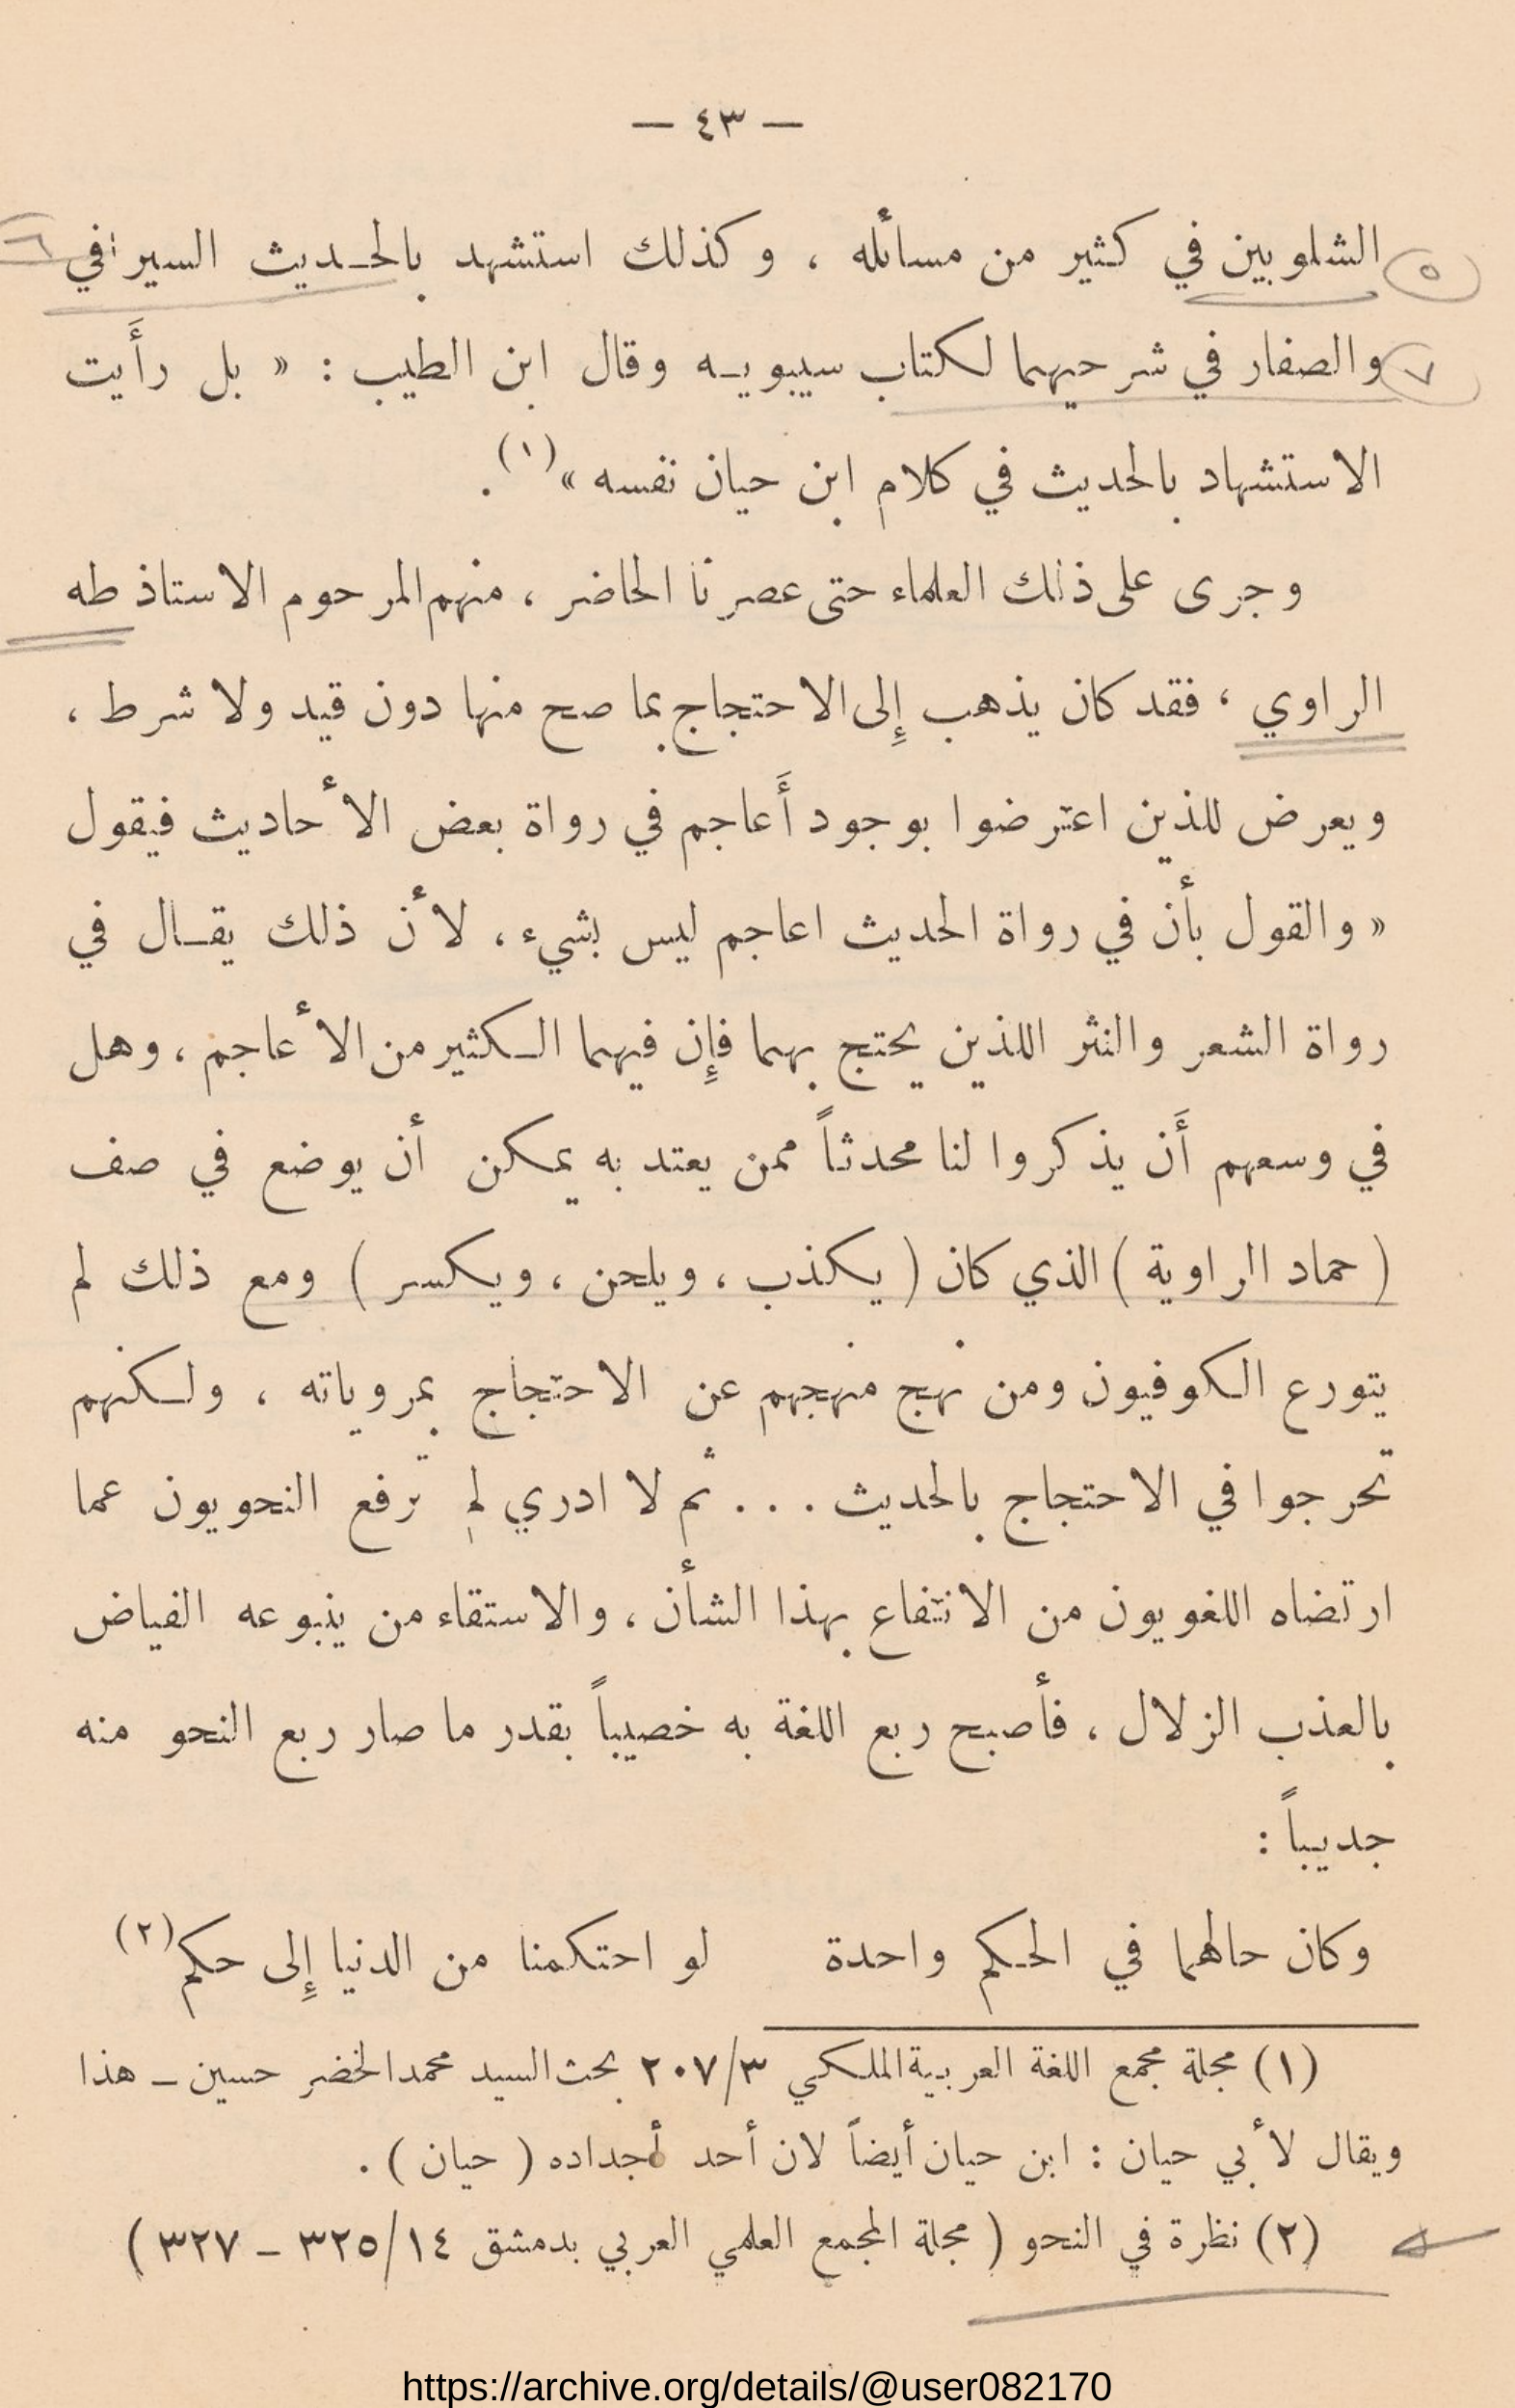 — ٤٣ —
٥ الشلوبين في كثير من مسائله ، وكذلك استشهد بالحـديث السيرافي ٦
٧ والصفار في شرحيهما لكتاب سيبويـه وقال ابن الطيب : « بل رأَيت
الاستشهاد بالحديث في كلام ابن حيان نفسه »(١) .
وجرى على ذلك العلماء حتى عصرنا الحاضر ، منهم المرحوم الاستاذ طه
الراوي ، فقد كان يذهب إِلى الاحتجاج بما صح منها دون قيد ولا شرط ،
ويعرض للذين اعترضوا بوجود أَعاجم في رواة بعض الأحاديث فيقول
« والقول بأن في رواة الحديث اعاجم ليس بشيء ، لأن ذلك يقـال في
رواة الشعر والنثر اللذين يحتج بهما فإِن فيهما الـكثير من الأعاجم ، وهل
في وسعهم أَن يذكروا لنا محدثاً ممن يعتد به يمكن أن يوضع في صف
( حماد الراوية ) الذي كان ( يكذب ، ويلحن ، ويكسر ) ومع ذلك لم
يتورع الكوفيون ومن نهج منهجهم عن الاحتجاج بمروياته ، ولـكنهم
تحرجوا في الاحتجاج بالحديث . . . ثم لا ادري لمِ ترفع النحويون عما
ارتضاه اللغويون من الانتفاع بهذا الشأن ، والاستقاء من ينبوعه الفياض
بالعذب الزلال ، فأصبح ربع اللغة به خصيباً بقدر ما صار ربع النحو منه
جديباً :
وكان حالهما في الحـكم واحدة لو احتكمنا من الدنيا إِلى حكم(٢)
(١) مجلة مجمع اللغة العربية الملكي ٢٠٧/٣ بحث السيد محمد الخضر حسين ــ هذا
ويقال لأبي حيان : ابن حيان أيضاً لان أحد أجداده ( حيان ) .
(٢) نظرة في النحو ( مجلة المجمع العلمي العربي بدمشق ٣٢٥/١٤ ــ ٣٢٧ )
https://archive.org/details/@user082170